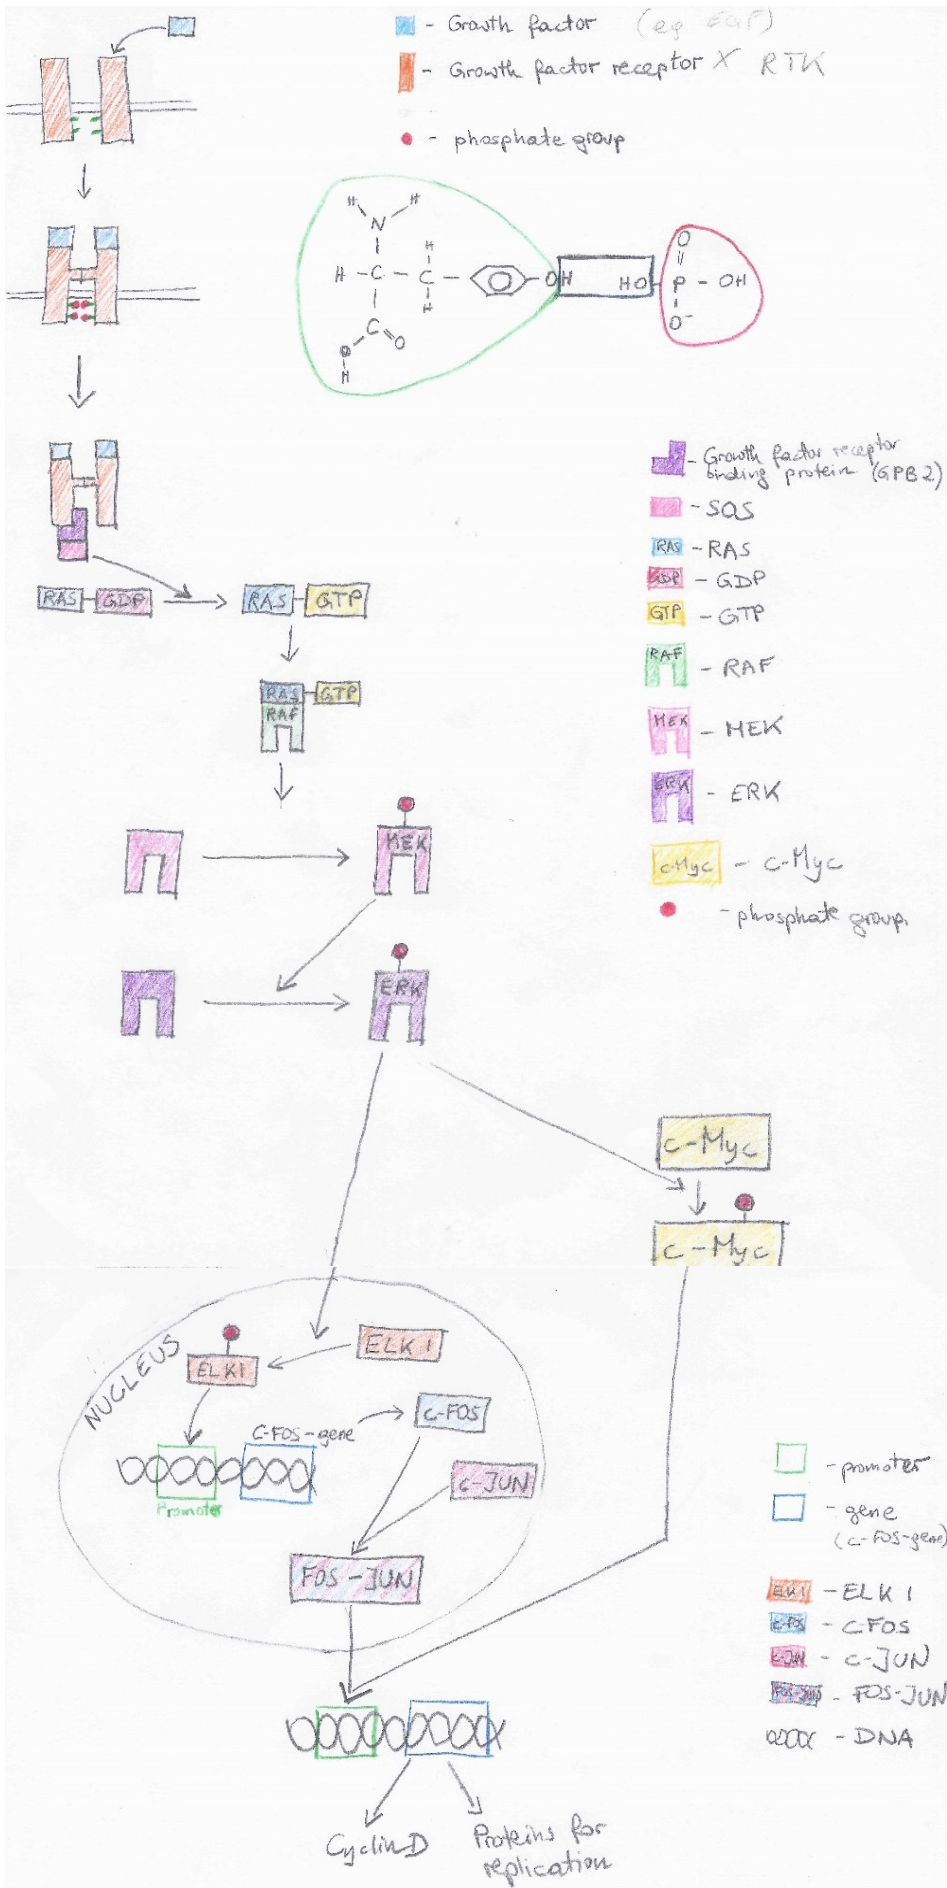 - Growth factor (eg EGF)
- Growth factor receptor X RTK
- phosphate group
H H
N
H
H - C - C - OH HO P - OH
H
O
O⁻
C
O
O
H
- Growth factor receptor
binding protein (GPB2)
- SOS
RAS - RAS
GDP - GDP
GTP - GTP
RAF - RAF
MEK - MEK
ERK - ERK
c-Myc - c-Myc
- phosphate group.
RAS - GDP
RAS - GTP
RAS - GTP
RAF
MEK
ERK
c-Myc
c-Myc
NUCLEUS
ELK1
ELK 1
C-FOS-gene
c-FOS
Promoter
c-JUN
FOS-JUN
- promoter
- gene
(c-FOS-gene)
ELK1 - ELK 1
c-FOS - c-FOS
c-JUN - c-JUN
FOS-JUN - FOS-JUN
- DNA
Cyclin D
Proteins for
replication